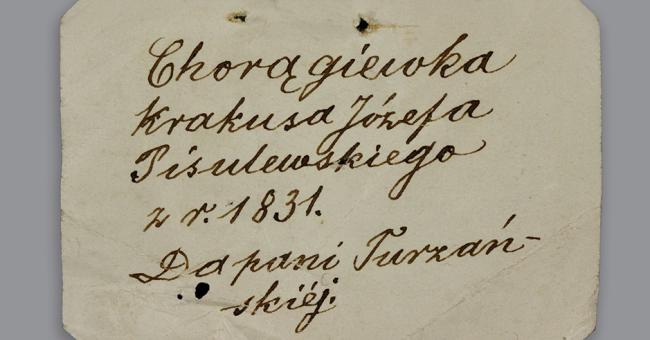 Chorągiewka
Krakusa Józefa
Pisulewskiego
z r. 1831.
Da pani Turzań-
skiéj.